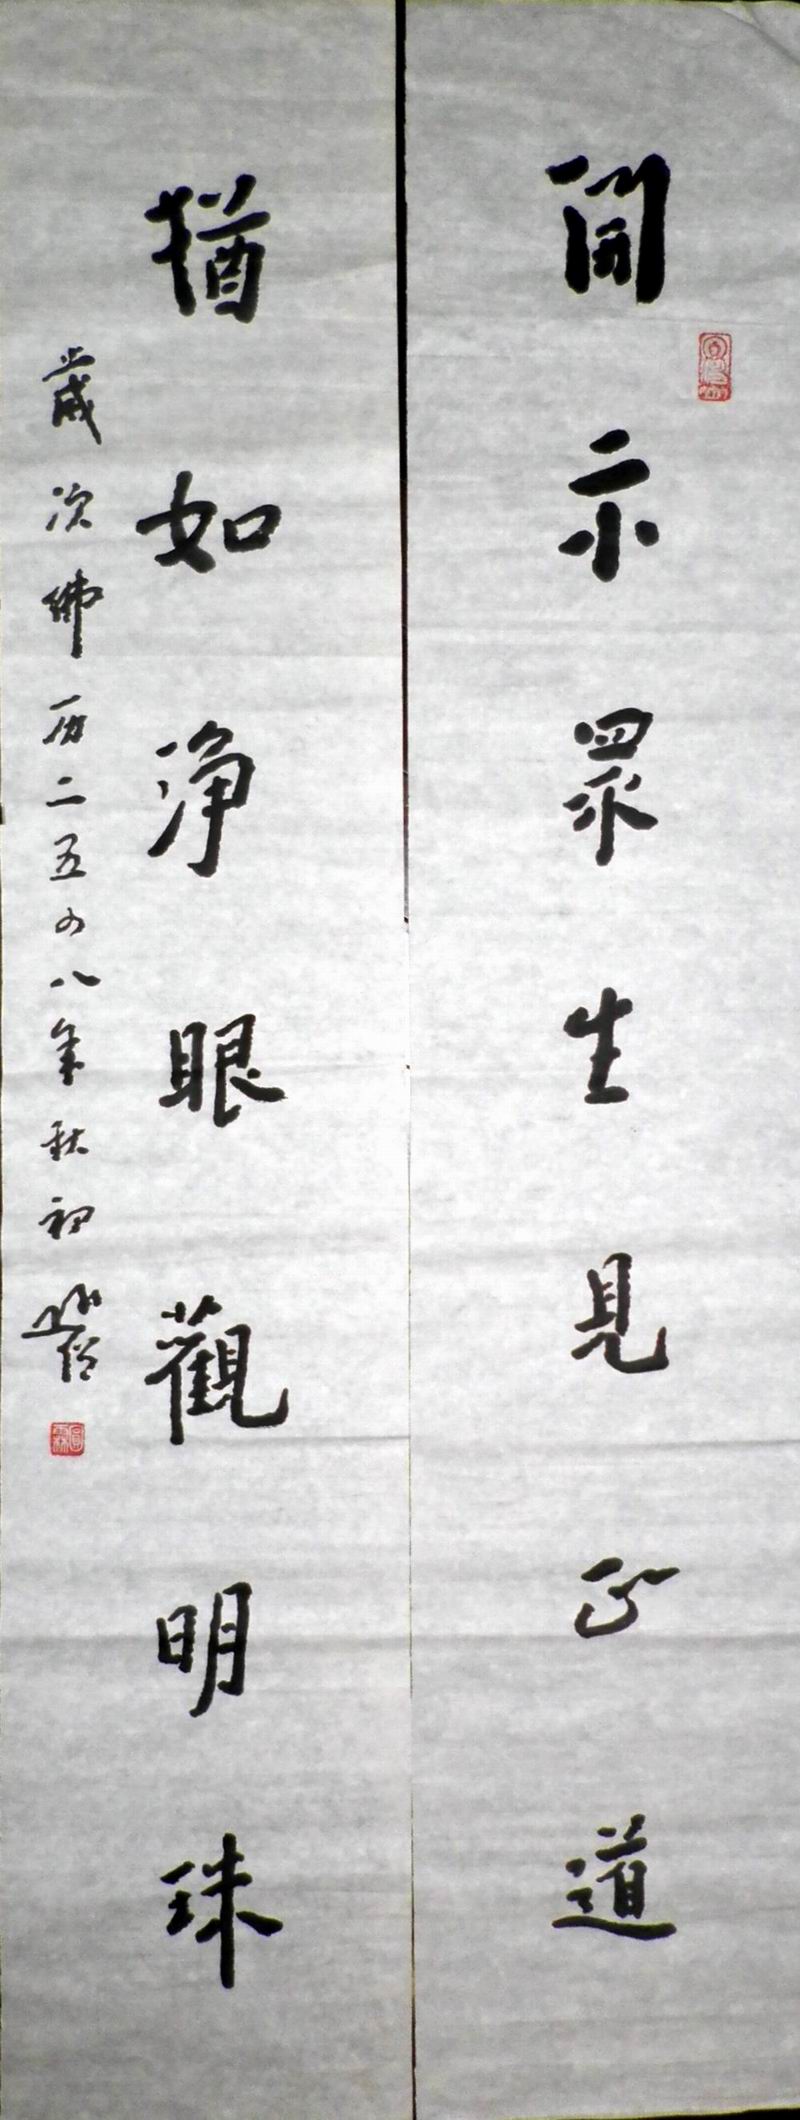 開示眾生見正道
猶如淨眼觀明珠
歲次佛历二五四八年秋初